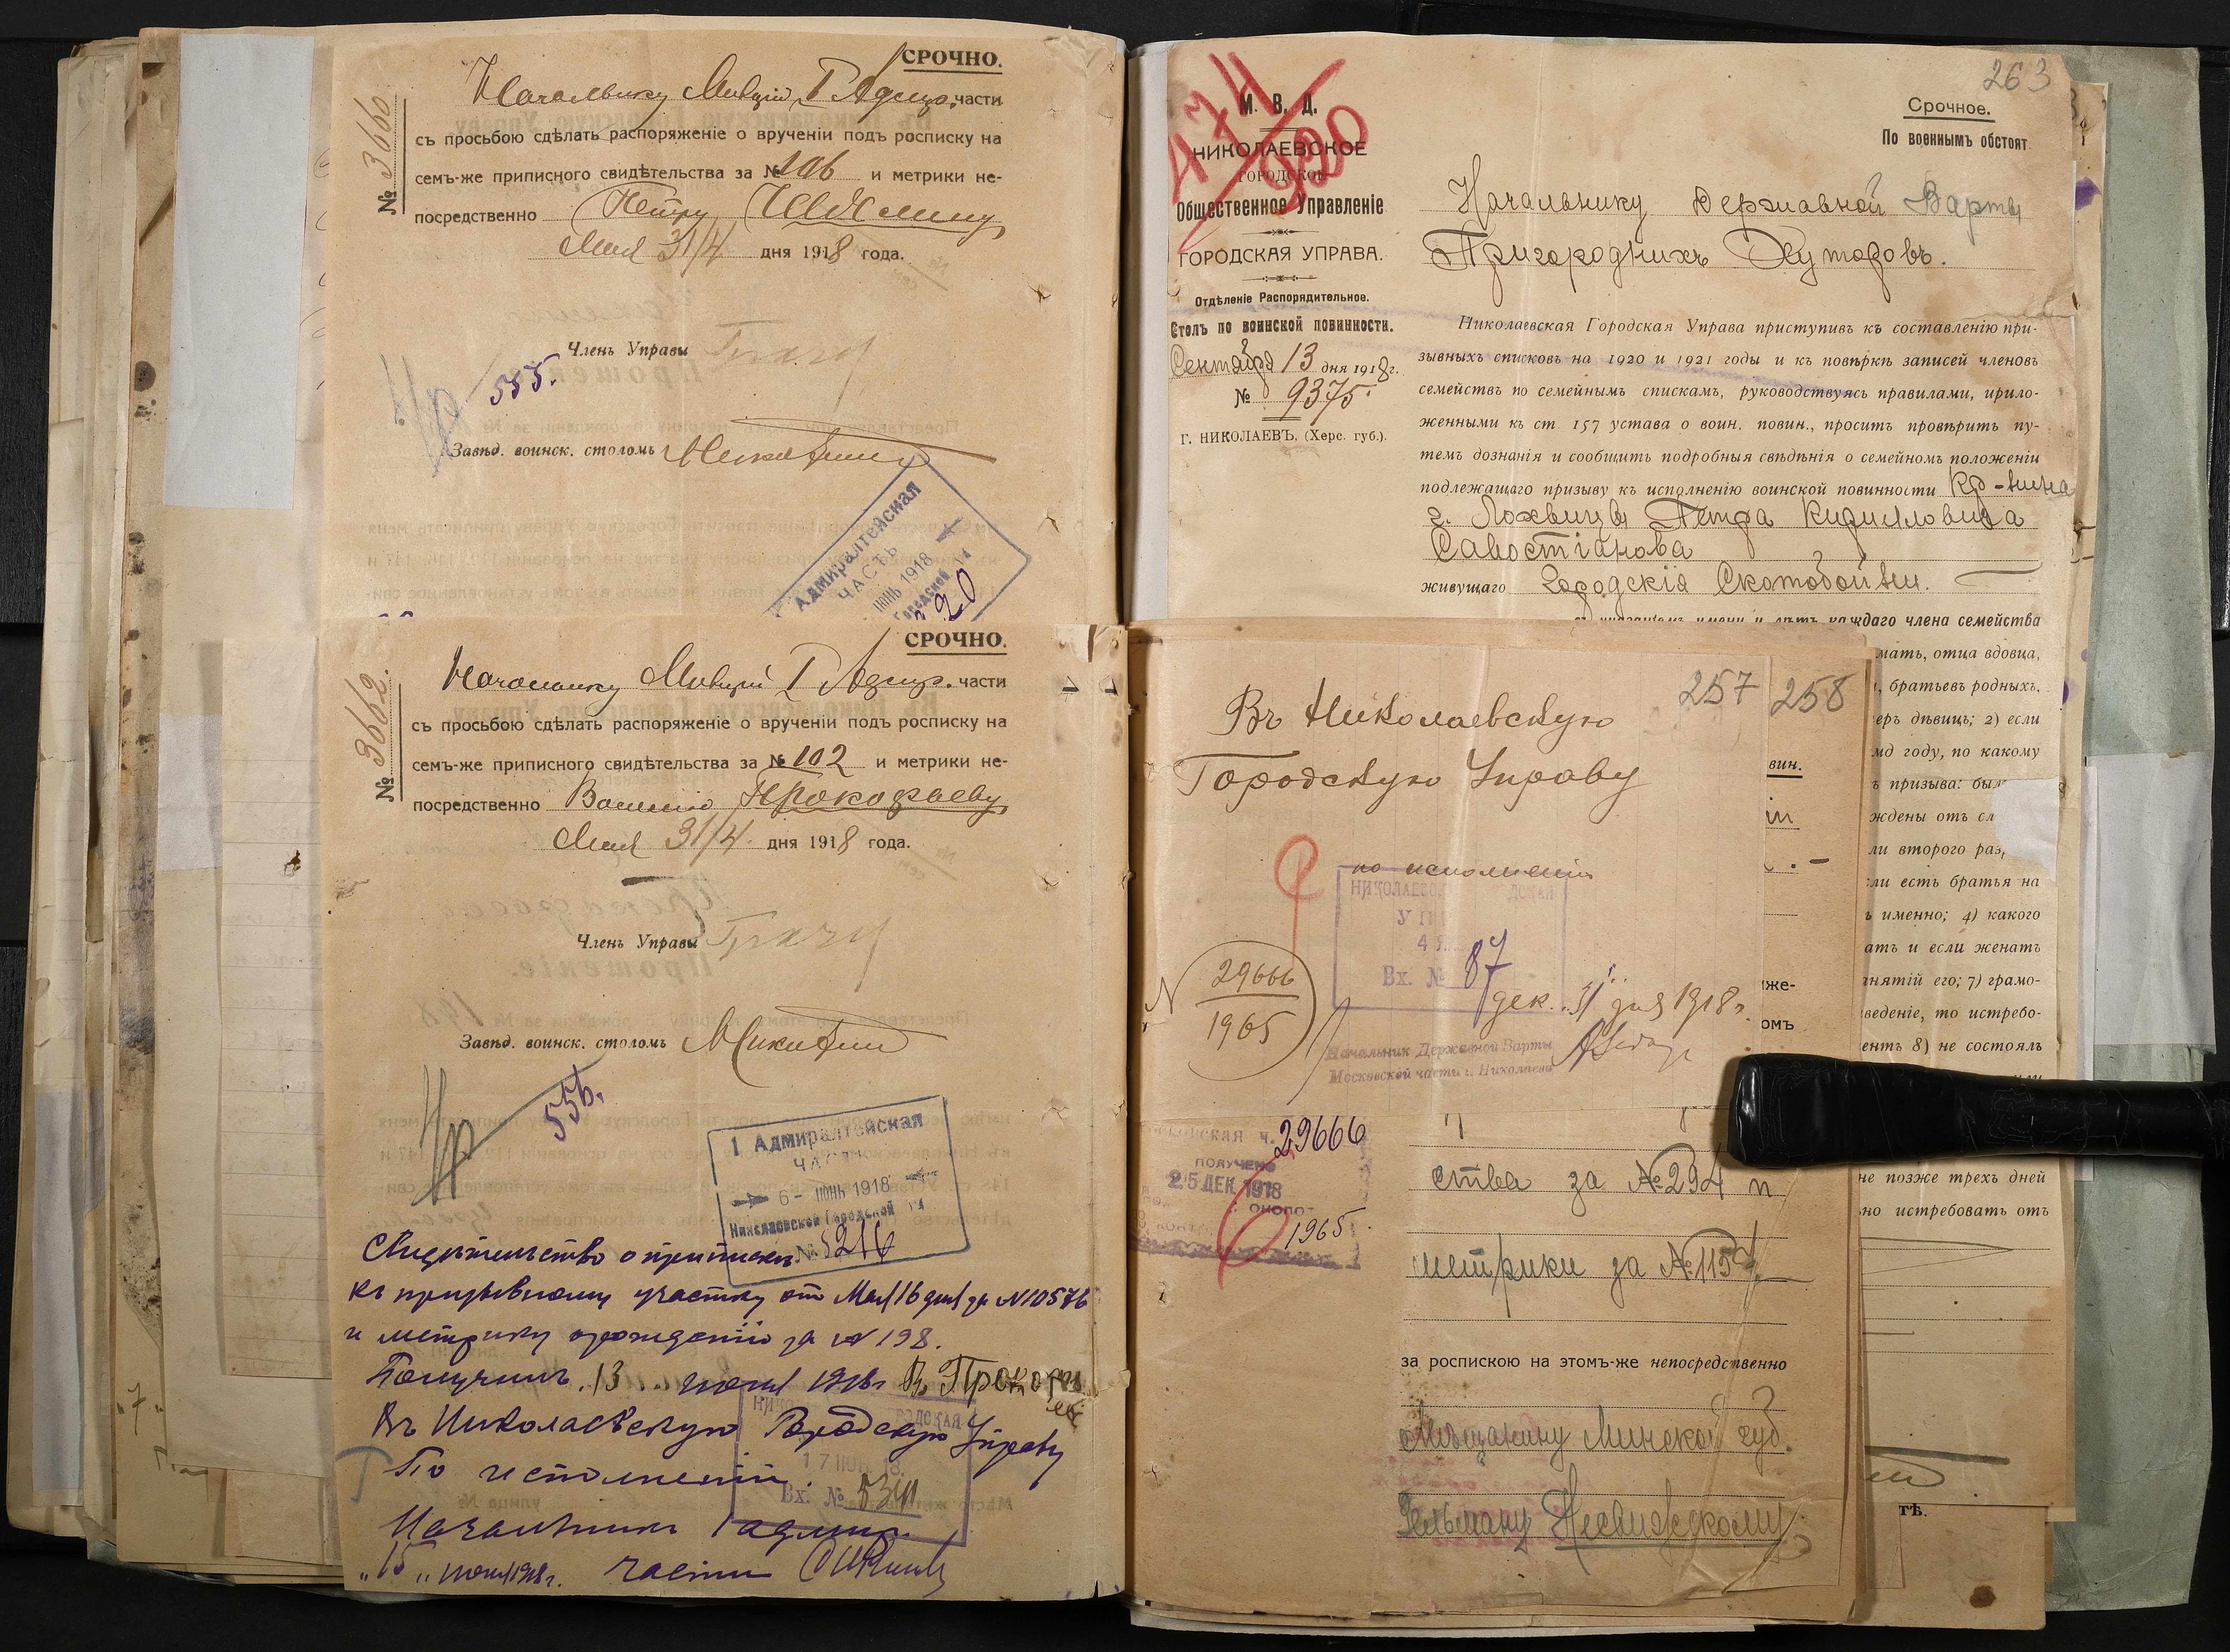 СРОЧНО.
№ 3660.
Начальнику Милиціи I Адмир. части
съ просьбою сдѣлать распоряженіе о врученіи подъ росписку на
семъ-же приписного свидѣтельства за № 106 и метрики не-
посредственно Петру
Мая 31/4 дня 1918 года.
Членъ Управы
555.
Завѣд. воинск. столомъ
Адмиралтейская
ЧАСТЬ
ІЮНЬ 1918
Городской
СРОЧНО.
№ 3662.
Начальнику Милиціи I Адмир. части
съ просьбою сдѣлать распоряженіе о врученіи подъ росписку на
семъ-же приписного свидѣтельства за № 102 и метрики не-
посредственно Василію Прокофьеву
Мая 31/4 дня 1918 года.
Членъ Управы
Завѣд. воинск. столомъ
556.
1 Адмиралтейская
ЧАСТЬ
6 - ІЮНЬ 1918
Николаевской Городской
№ 5216
Свидѣтельство о приписки
къ призывному участку от Мая 16 дня за N 10576
и метрику о рожденіи за № 198.
Получилъ 13 июня 1918 г. В. Прокофьев
Въ Николаевскую Городскую Управу
По исполненіи.
17 ІЮН
Вх. №
Начальникъ 1 адмир.
"15" июня 1918 г. части
263
Срочное.
По военнымъ обстоят.
474
920
М. В. Д.
НИКОЛАЕВСКОЕ
ГОРОДСКОЕ
Общественное Управленіе
ГОРОДСКАЯ УПРАВА.
Отдѣленіе Распорядительное.
Столъ по воинской повинности.
Сентября 13 дня 1918 г.
№ 9375.
Г. НИКОЛАЕВЪ, (Херс. губ.).
Начальнику Державной Варты
Пригородныхъ Хуторовъ.
Николаевская Городская Управа приступивъ къ составленію при-
зывныхъ списковъ на 1920 и 1921 годы и къ повѣркѣ записей членовъ
семействъ по семейнымъ спискамъ, руководствуясь правилами, прило-
женными къ ст 157 устава о воин. повин., проситъ провѣрить пу-
темъ дознанія и сообщить подробныя свѣдѣнія о семейномъ положеніи
подлежащаго призыву къ исполненію воинской повинности Кр-нина
г. Лохвицы Петра Кирилловича
Савостіанова
живущаго Городскія Скотобойни.
лѣтъ каждаго члена семейства
мать, отца вдовца,
братьевъ родныхъ,
еръ дѣвицъ; 2) если
мд году, по какому
ъ призыва: был
ждены отъ сл
ли второго раз,
ли есть братья на
ь именно; 4) какого
ать и если женатъ
нятій его; 7) грамо-
веденіе, то истребо-
ентъ 8) не состоялъ
не позже трехъ дней
но истребовать отъ
257
258
вин.
же-
омъ
тѣ.
Въ Николаевскую
Городскую Управу
по исполненіи
НИКОЛАЕВС ДСКАЯ
Вх. № 87
N 29666
1965
дек. 31 дня 1918 г.
Начальник Державной Варты
Московской части г. Николаева
29666
ПОЛУЧЕНО
25 ДЕК 1918
1965
ства за № 294 и
метрики за № 1157
за роспискою на этомъ-же непосредственно
Мѣщанину Минской губ.
Гельману Несвижскому